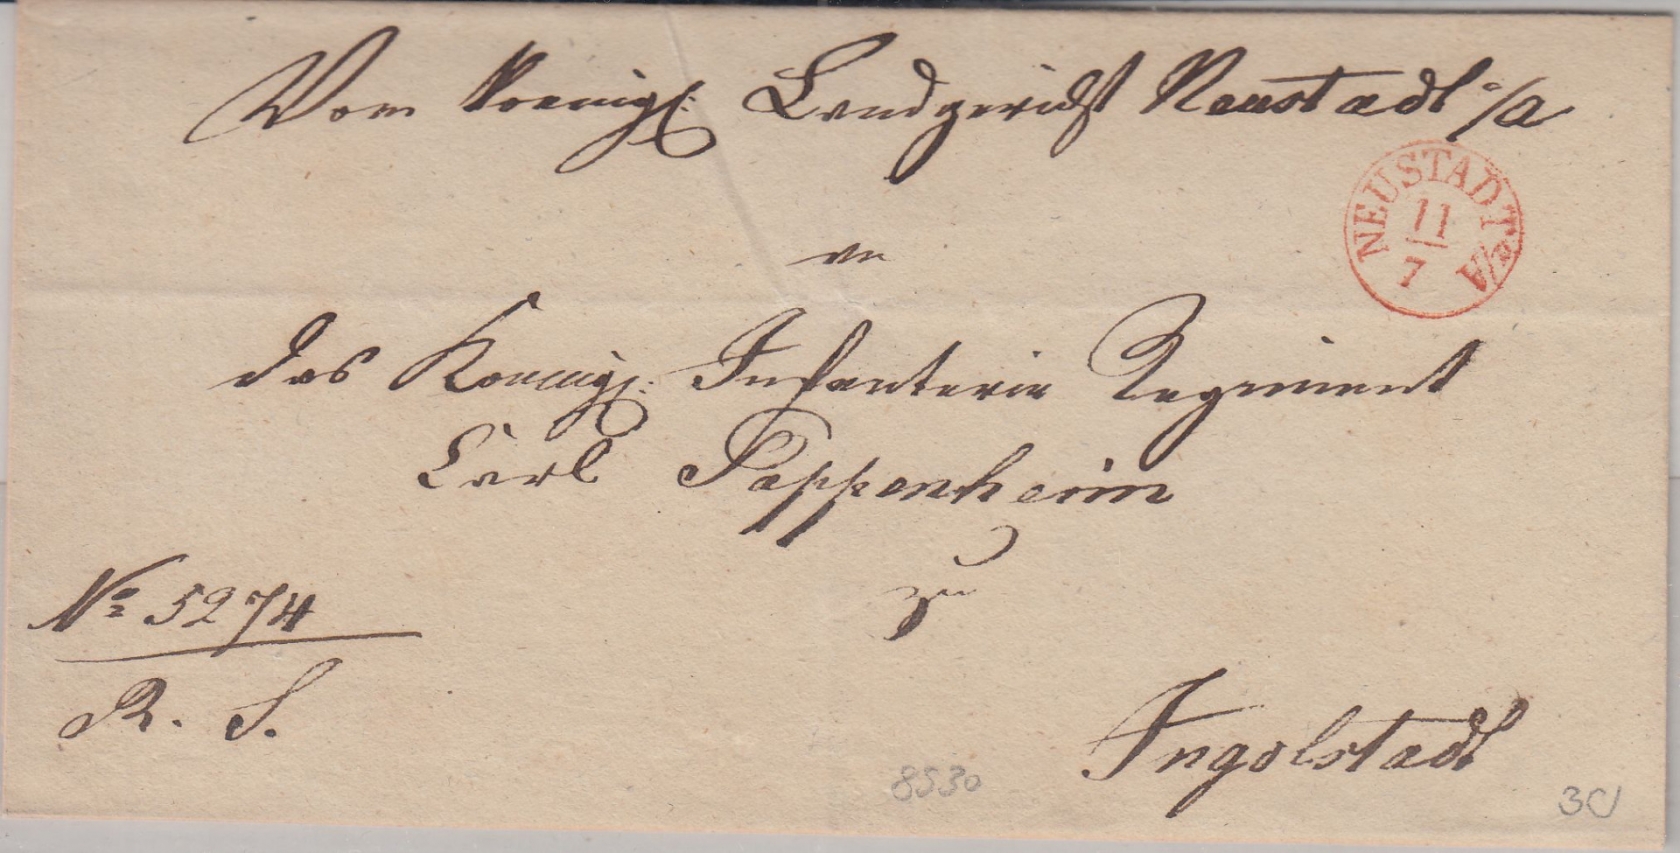 Vom koenigl: Landgericht Neustadt a/a
NEUSTADT a/A
11
7
an
das Koenigl: Infanterie Regiment
Carl Pappenheim
zu
No 5274
R. S.
Ingolstadt
8530